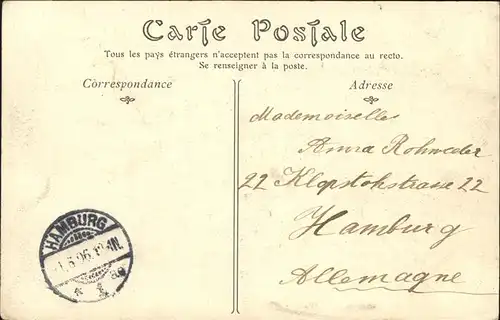 Carte Postale
Tous les pays étrangers n'acceptent pas la correspondance au recto.
Se renseigner à la poste.
Correspondance
Adresse
Mademoiselle
Anna Rohweder
22 Klopstohstrasse 22
Hamburg
Allemagne
HAMBURG